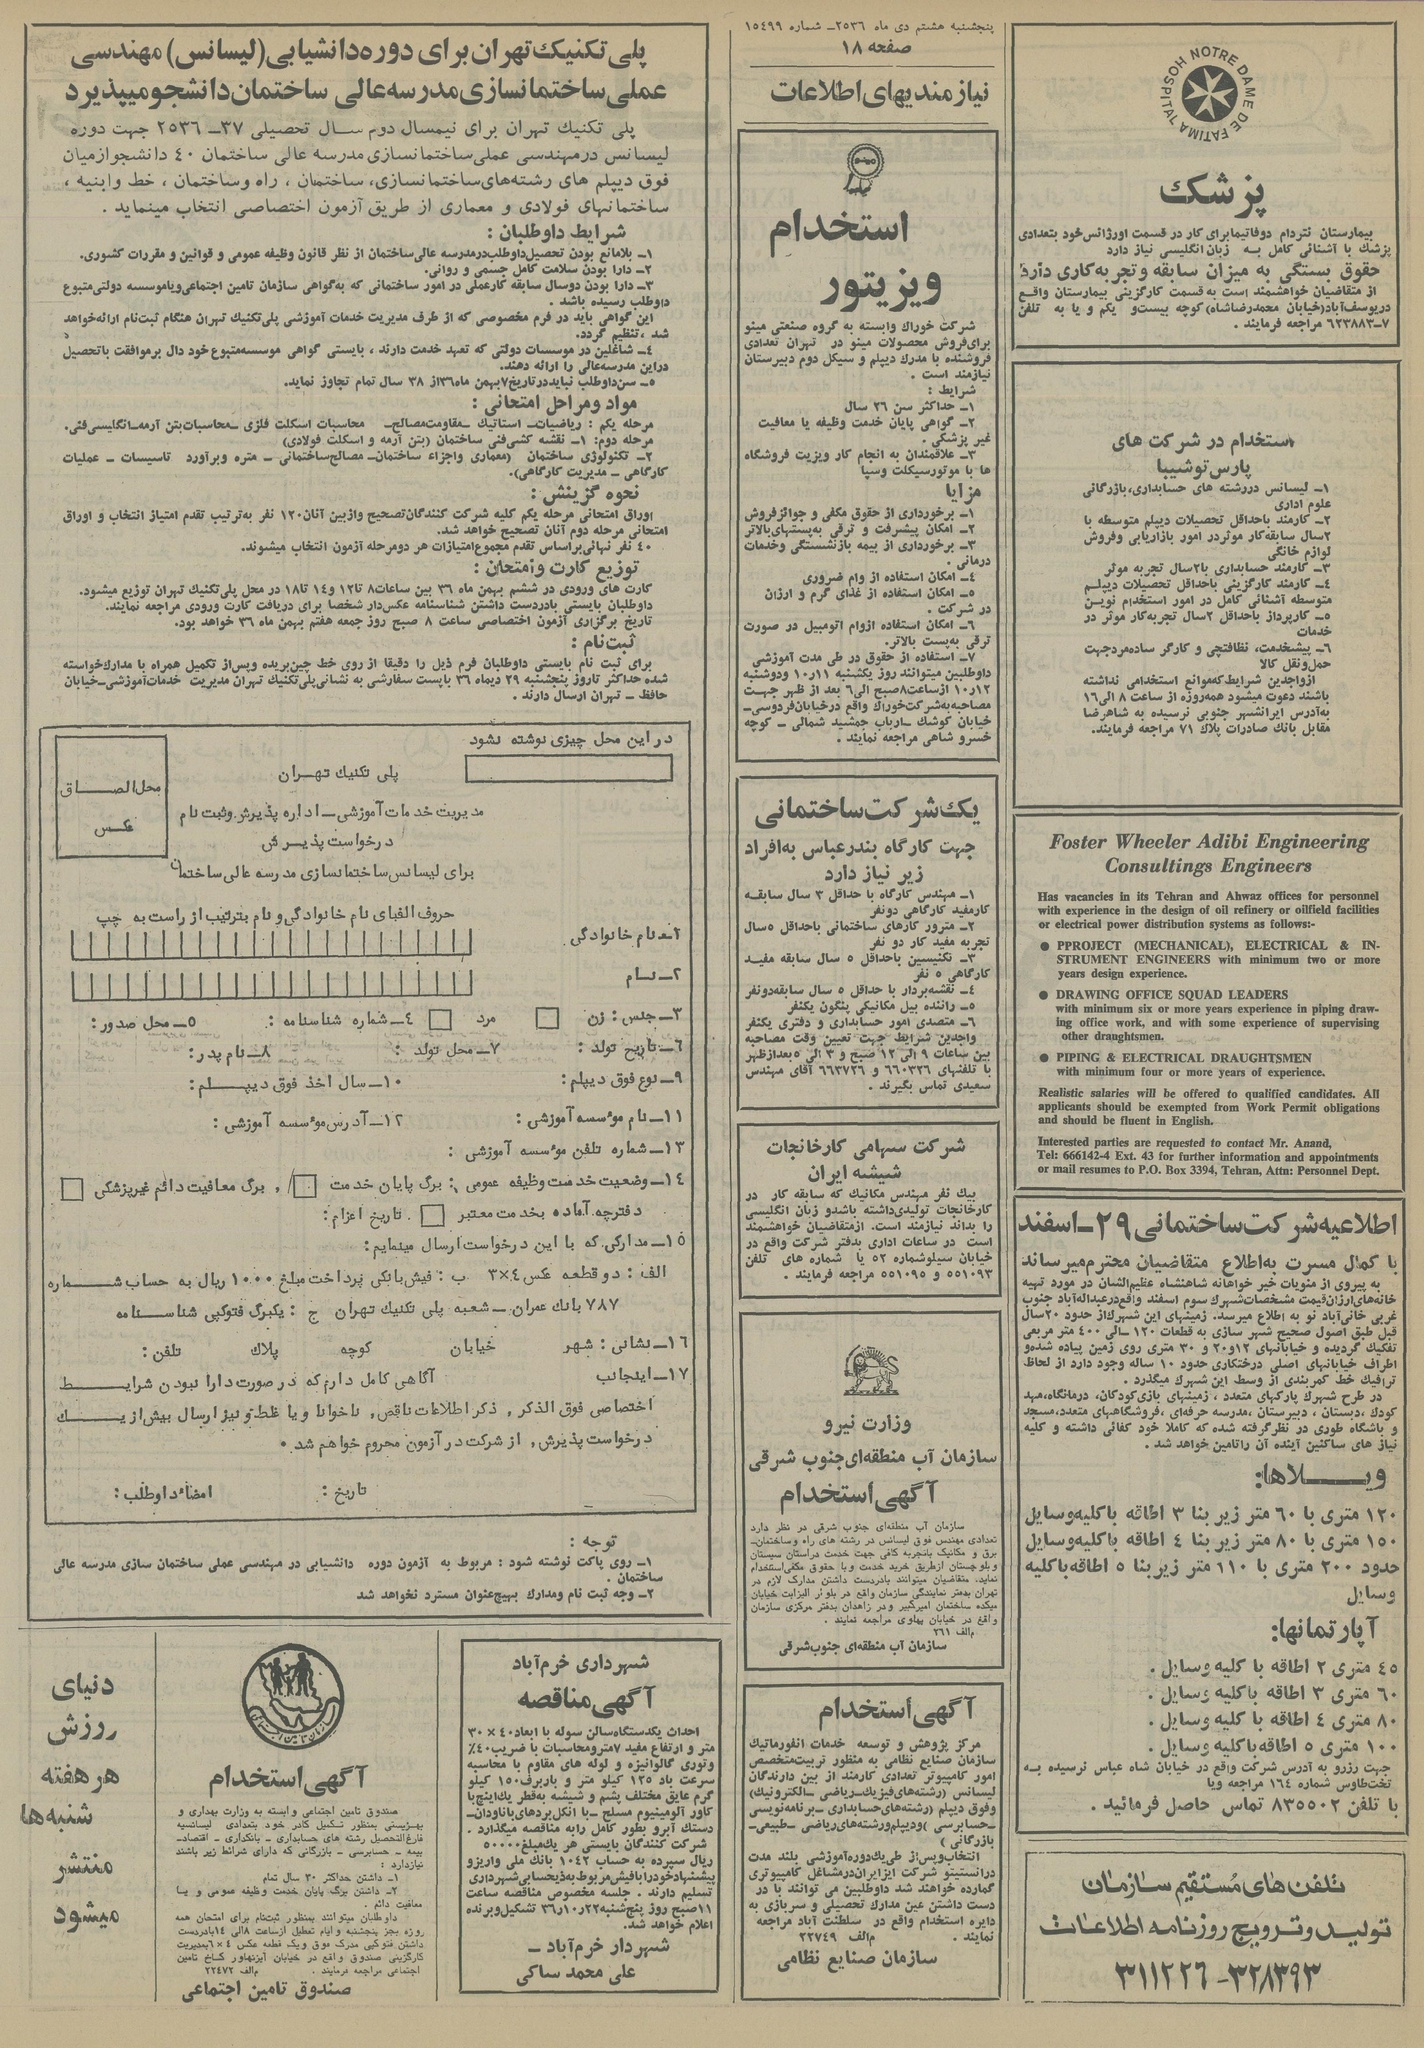 پنجشنبه هشتم دی ماه ۲۵۳۶ـ شماره ۱۵۴۹۹
صفحه ۱۸
نیازمندیهای اطلاعات
NOTRE DAME DE FATIMA HOSPITAL
پزشک
بیمارستان نتردام دوفاتیما برای کار در قسمت اورژانس خود بتعدادی
پزشک با آشنائی کامل به زبان انگلیسی نیاز دارد
حقوق بستگی به میزان سابقه و تجربه کاری دارد
از متقاضیان خواهشمند است به قسمت کارگزینی بیمارستان واقع
در یوسف‌آباد (خیابان محمدرضاشاه) کوچه بیست و یکم و یا به تلفن
۷ـ۶۲۳۸۸۳ مراجعه فرمایند.
استخدام در شرکت های
پارس توشیبا
۱ـ لیسانس دررشته های حسابداری، بازرگانی
علوم اداری
۲ـ کارمند باحداقل تحصیلات دیپلم متوسطه با
۲سال سابقه کار موثر در امور بازاریابی وفروش
لوازم خانگی
۳ـ کارمند حسابداری با۲سال تجربه موثر
۴ـ کارمند کارگزینی باحداقل تحصیلات دیپلم
متوسطه آشنائی کامل در امور استخدام نوین
۵ـ کارپرداز باحداقل ۲سال تجربه کار موثر در
خدمات
۶ـ پیشخدمت، نظافتچی و کارگر ساده مردجهت
حمل ونقل کالا
ازواجدین شرایط که موانع استخدامی نداشته
باشند دعوت میشود همه روزه از ساعت ۸ الی۱۶
به آدرس ایرانشهر جنوبی نرسیده به شاهرضا
مقابل بانک صادرات پلاک ۷۱ مراجعه فرمایند.
Foster Wheeler Adibi Engineering
Consultings Engineers
Has vacancies in its Tehran and Ahwaz offices for personnel
with experience in the design of oil refinery or oilfield facilities
or electrical power distribution systems as follows:-
● PPROJECT (MECHANICAL), ELECTRICAL & IN-
STRUMENT ENGINEERS with minimum two or more
years design experience.
● DRAWING OFFICE SQUAD LEADERS
with minimum six or more years experience in piping draw-
ing office work, and with some experience of supervising
other draughtsmen.
● PIPING & ELECTRICAL DRAUGHTSMEN
with minimum four or more years of experience.
Realistic salaries will be offered to qualified candidates. All
applicants should be exempted from Work Permit obligations
and should be fluent in English.
Interested parties are requested to contact Mr. Anand,
Tel: 666142-4 Ext. 43 for further information and appointments
or mail resumes to P.O. Box 3394, Tehran, Attn: Personnel Dept.
اطلاعیه شرکت ساختمانی ۲۹ـ اسفند
با کمال مسرت به اطلاع متقاضیان محترم میرساند
به پیروی از منویات خیر خواهانه شاهنشاه عظیم الشان در مورد تهیه
خانه های ارزان قیمت مشخصات شهرک سوم اسفند واقع درعبداله آباد جنوب
غربی خانی آباد نو به اطلاع میرسد. زمینهای این شهرک از حدود ۲۰سال
قبل طبق اصول صحیح شهر سازی به قطعات ۱۲۰ ـ الی ۴۰۰ متر مربعی
تفکیک گردیده و خیابانهای ۱۲و۲۰ و ۳۰ متری روی زمین پیاده شده و
اطراف خیابانهای اصلی درختکاری حدود ۱۰ ساله وجود دارد از لحاظ
ترافیک خط کمربندی از وسط این شهرک میگذرد.
در طرح شهرک پارکهای متعدد، زمینهای بازی کودکان، درمانگاه، مهد
کودک، دبستان، دبیرستان، مدرسه حرفه ای، فروشگاههای متعدد، مسجد
و باشگاه طوری در نظر گرفته شده که کاملا خود کفائی داشته و کلیه
نیاز های ساکنین آینده آن را تامین خواهد شد.
ویــلاها:
۱۲۰ متری با ۶۰ متر زیر بنا ۳ اطاقه با کلیه وسایل
۱۵۰ متری با ۸۰ متر زیر بنا ۴ اطاقه با کلیه وسایل
حدود ۲۰۰ متری با ۱۱۰ متر زیر بنا ۵ اطاقه با کلیه
وسایل
آپارتمانها:
۴۵ متری ۲ اطاقه با کلیه وسایل.
۶۰ متری ۳ اطاقه با کلیه وسایل.
۸۰ متری ۴ اطاقه با کلیه وسایل.
۱۰۰ متری ۵ اطاقه با کلیه وسایل.
جهت رزرو به آدرس شرکت واقع در خیابان شاه عباس نرسیده به
تخت طاوس شماره ۱۶۴ مراجعه ویا
با تلفن ۸۳۵۵۰۲ تماس حاصل فرمائید.
تلفن های مستقیم سازمان
تولید و ترویج روزنامه اطلاعات
۳۲۸۳۹۳ـ۳۱۱۲۲۶
مینو
استخدام
ویزیتور
شرکت خوراک وابسته به گروه صنعتی مینو
برای فروش محصولات مینو در تهران تعدادی
فروشنده با مدرک دیپلم و سیکل دوم دبیرستان
نیازمند است.
شرایط:
۱ـ حداکثر سن ۲۶ سال
۲ـ گواهی پایان خدمت وظیفه یا معافیت
غیر پزشکی.
۳ـ علاقمندان به انجام کار ویزیت فروشگاه
ها با موتورسیکلت وسپا
مزایا
۱ـ برخورداری از حقوق مکفی و جوائز فروش
۲ـ امکان پیشرفت و ترقی به پستهای بالاتر
۳ـ برخورداری از بیمه بازنشستگی وخدمات
درمانی.
۴ـ امکان استفاده از وام ضروری
۵ـ امکان استفاده از غذای گرم و ارزان
در شرکت.
۶ـ امکان استفاده ازوام اتومبیل در صورت
ترقی به پست بالاتر.
۷ـ استفاده از حقوق در طی مدت آموزشی
داوطلبین میتوانند روز یکشنبه ۱۱ر۱۰ ودوشنبه
۱۲ر۱۰ ازساعت ۸صبح الی۶ بعد از ظهر جهت
مصاحبه به شرکت خوراک واقع درخیابان فردوسی ـ
خیابان کوشک ـ ارباب جمشید شمالی ـ کوچه
خسرو شاهی مراجعه نمایند.
یک شرکت ساختمانی
جهت کارگاه بندرعباس به افراد
زیر نیاز دارد
۱ـ مهندس کارگاه با حداقل ۳ سال سابقه
کارمفید کارگاهی دونفر
۲ـ مترور کارهای ساختمانی باحداقل ۵سال
تجربه مفید کار دو نفر
۳ـ تکنیسین باحداقل ۵ سال سابقه مفید
کارگاهی ۵ نفر
۴ـ نقشه بردار با حداقل ۵ سال سابقه دونفر
۵ـ راننده بیل مکانیکی پنگون یکنفر
۶ـ متصدی امور حسابداری و دفتری یکنفر
واجدین شرایط جهت تعیین وقت مصاحبه
بین ساعات ۹ الی ۱۲ صبح و ۳ الی ۵بعدازظهر
با تلفنهای ۶۶۰۳۲۶ و ۶۶۳۷۲۶ آقای مهندس
سعیدی تماس بگیرند.
شرکت سهامی کارخانجات
شیشه ایران
بیک نفر مهندس مکانیک که سابقه کار در
کارخانجات تولیدی داشته باشد و زبان انگلیسی
را بداند نیازمند است. ازمتقاضیان خواهشمند
است در ساعات اداری بدفتر شرکت واقع در
خیابان سیلو شماره ۵۲ یا شماره های تلفن
۵۵۱۰۹۳ و ۵۵۱۰۹۵ مراجعه فرمایند.
وزارت نیرو
سازمان آب منطقه ای جنوب شرقی
آگهی استخدام
سازمان آب منطقه ای جنوب شرقی در نظر دارد
تعدادی مهندس فوق لیسانس در رشته های راه و ساختمان ـ
برق و مکانیک باتجربه کافی جهت خدمت دراستان سیستان
وبلوچستان ازطریق خرید خدمت وبا حقوق مکفی استخدام
نماید. متقاضیان میتوانند بادردست داشتن مدارک لازم در
تهران بدفتر نمایندگی سازمان واقع در بلوار الیزابت خیابان
میکده ساختمان امیرکبیر و در زاهدان بدفتر مرکزی سازمان
واقع در خیابان پهلوی مراجعه نمایند.
م الف ۲۶۱
سازمان آب منطقه ای جنوب شرقی
آگهی استخدام
مرکز پژوهش و توسعه خدمات انفورماتیک
سازمان صنایع نظامی به منظور تربیت متخصص
امور کامپیوتر تعدادی کارمند از بین دارندگان
لیسانس (رشته های فیزیک ـ ریاضی ـ الکترونیک)
وفوق دیپلم (رشته های حسابداری ـ برنامه نویسی
ـ حسابرسی) ودیپلم ورشته های ریاضی ـ طبیعی ـ
بازرگانی)
انتخاب وپس از طی یک دوره آموزشی بلند مدت
درانستیتو شرکت ایزایران درمشاغل کامپیوتری
گمارده خواهند شد داوطلبین می توانند با در
دست داشتن عین مدارک تحصیلی و سربازی به
دایره استخدام واقع در سلطنت آباد مراجعه
نمایند. م الف ۲۲۷۴۹
سازمان صنایع نظامی
پلی تکنیک تهران برای دوره دانشیابی (لیسانس) مهندسی
عملی ساختمانسازی مدرسه عالی ساختمان دانشجو میپذیرد
پلی تکنیک تهران برای نیمسال دوم سال تحصیلی ۳۷ـ ۲۵۳۶ جهت دوره
لیسانس درمهندسی عملی ساختمانسازی مدرسه عالی ساختمان ۴۰ دانشجو ازمیان
فوق دیپلم های رشته های ساختمانسازی، ساختمان، راه وساختمان، خط وابنیه،
ساختمانهای فولادی و معماری از طریق آزمون اختصاصی انتخاب مینماید.
شرایط داوطلبان:
۱ـ بلامانع بودن تحصیل داوطلب درمدرسه عالی ساختمان از نظر قانون وظیفه عمومی و قوانین و مقررات کشوری.
۲ـ دارا بودن سلامت کامل جسمی و روانی.
۳ـ دارا بودن دوسال سابقه کارعملی در امور ساختمانی که به گواهی سازمان تامین اجتماعی ویاموسسه دولتی متبوع
داوطلب رسیده باشد.
این گواهی باید در فرم مخصوصی که از طرف مدیریت خدمات آموزشی پلی تکنیک تهران هنگام ثبت نام ارائه خواهد
شد، تنظیم گردد.
۴ـ شاغلین در موسسات دولتی که تعهد خدمت دارند، بایستی گواهی موسسه متبوع خود دال برموافقت باتحصیل
دراین مدرسه عالی را ارائه دهند.
۵ـ سن داوطلب نباید درتاریخ ۷بهمن ماه ۳۶از ۳۸ سال تمام تجاوز نماید.
مواد ومراحل امتحانی:
مرحله یکم: ریاضیات ـ استاتیک ـ مقاومت مصالح ـ محاسبات اسکلت فلزی ـ محاسبات بتن آرمه ـ انگلیسی فنی.
مرحله دوم: ۱ـ نقشه کشی فنی ساختمان (بتن آرمه و اسکلت فولادی)
۲ـ تکنولوژی ساختمان (معماری واجزاء ساختمان ـ مصالح ساختمانی ـ متره وبرآورد تاسیسات ـ عملیات
کارگاهی ـ مدیریت کارگاهی).
نحوه گزینش:
اوراق امتحانی مرحله یکم کلیه شرکت کنندگان تصحیح وازبین آنان ۱۲۰ نفر به ترتیب تقدم امتیاز انتخاب و اوراق
امتحانی مرحله دوم آنان تصحیح خواهد شد.
۴۰ نفر نهائی براساس تقدم مجموع امتیازات هر دومرحله آزمون انتخاب میشوند.
توزیع کارت وامتحان:
کارت های ورودی در ششم بهمن ماه ۳۶ بین ساعات ۸ تا۱۲ و۱۴ تا۱۸ در محل پلی تکنیک تهران توزیع میشود.
داوطلبان بایستی بادردست داشتن شناسنامه عکس دار شخصا برای دریافت کارت ورودی مراجعه نمایند.
تاریخ برگزاری آزمون اختصاصی ساعت ۸ صبح روز جمعه هفتم بهمن ماه ۳۶ خواهد بود.
ثبت نام:
برای ثبت نام بایستی داوطلبان فرم ذیل را دقیقا از روی خط چین بریده وپس از تکمیل همراه با مدارک خواسته
شده حداکثر تاروز پنجشنبه ۲۹ دیماه ۳۶ باپست سفارشی به نشانی پلی تکنیک تهران مدیریت خدمات آموزشی ـ خیابان
حافظ ـ تهران ارسال دارند.
در این محل چیزی نوشته نشود
محل الصاق
عکس
پلی تکنیک تهران
مدیریت خدمات آموزشی ـ اداره پذیرش وثبت نام
درخواست پذیرش
برای لیسانس ساختمانسازی مدرسه عالی ساختمان
حروف الفبای نام خانوادگی و نام بترتیب از راست به چپ
۱ـ نام خانوادگی
۲ـ نام
۳ـ جنس: زن مرد ۴ـ شماره شناسنامه: ۵ـ محل صدور:
۶ـ تاریخ تولد: ۷ـ محل تولد: ۸ـ نام پدر:
۹ـ نوع فوق دیپلم: ۱۰ـ سال اخذ فوق دیپلم:
۱۱ـ نام موٴسسه آموزشی: ۱۲ـ آدرس موٴسسه آموزشی:
۱۳ـ شماره تلفن موٴسسه آموزشی:
۱۴ـ وضعیت خدمت وظیفه عمومی: برگ پایان خدمت , برگ معافیت دائم غیرپزشکی
دفترچه آماده بخدمت معتبر . تاریخ اعزام:
۱۵ـ مدارکی که با این درخواست ارسال مینمایم:
الف: دو قطعه عکس ۴×۳ ب: فیش بانکی پرداخت مبلغ ۱۰۰۰ ریال به حساب شماره
۷۸۷ بانک عمران ـ شعبه پلی تکنیک تهران ج: یکبرگ فتوکپی شناسنامه
۱۶ـ نشانی: شهر خیابان کوچه پلاک تلفن:
۱۷ـ اینجانب آگاهی کامل دارم که در صورت دارا نبودن شرایط
اختصاصی فوق الذکر, ذکر اطلاعات ناقص, ناخوانا و یا غلط و نیز ارسال بیش از یک
درخواست پذیرش, از شرکت در آزمون محروم خواهم شد.
تاریخ: امضاء داوطلب:
توجه:
۱ـ روی پاکت نوشته شود: مربوط به آزمون دوره دانشیابی در مهندسی عملی ساختمان سازی مدرسه عالی
ساختمان.
۲ـ وجه ثبت نام ومدارک بهیچ عنوان مسترد نخواهد شد
شهرداری خرم آباد
آگهی مناقصه
احداث یکدستگاه سالن سوله با ابعاد ۴۰ × ۳۰
متر و ارتفاع مفید ۷متر ومحاسبات با ضریب ۴۰٪
وتوری گالوانیزه و لوله های مقاوم با محاسبه
سرعت باد ۱۳۵ کیلو متر و باربرف ۱۵۰ کیلو
گرم عایق مختلف پشم و شیشه به قطر یک اینچ با
کاور آلومینیوم مسلح ـ با انکل بردهای باناودان ـ
دستک آبرو بطور کامل رابه مناقصه میگذارد.
شرکت کنندگان بایستی هر یک مبلغ ۵۰۰۰۰۰
ریال سپرده به حساب ۱۰۴۲ بانک ملی واریز و
پیشنهاد خود را بافیش مربوط به ذیحسابی شهرداری
تسلیم دارند. جلسه مخصوص مناقصه ساعت
۱۱صبح روز پنج شنبه ۲۲ر۱۰ر۳۶ تشکیل وبرنده
اعلام خواهد شد.
شهردار خرم آباد ـ
علی محمد ساکی
آگهی استخدام
صندوق تامین اجتماعی وابسته به وزارت بهداری و
بهزیستی بمنظور تکمیل کادر خود بتعدادی لیسانسیه
فارغ التحصیل رشته های حسابداری ـ بانکداری ـ اقتصاد ـ
بیمه ـ حسابرسی ـ بازرگانی که دارای شرائط زیر باشند
نیازدارد:
۱ـ داشتن حداکثر ۳۰ سال تمام
۲ـ داشتن برگ پایان خدمت وظیفه عمومی و یا
معافیت دائم.
داوطلبان میتوانند بمنظور ثبت نام برای امتحان همه
روزه بجز پنجشنبه و ایام تعطیل از ساعت ۸الی ۱۴ بادردست
داشتن فتوکپی مدرک فوق ویک قطعه عکس ۴ × ۶ بمدیریت
کارگزینی صندوق واقع در خیابان آیزنهاور کاخ تامین
اجتماعی مراجعه فرمایند. م الف ۲۲۴۷۲
صندوق تامین اجتماعی
دنیای
ورزش
هر هفته
شنبه ها
منتشر
میشود